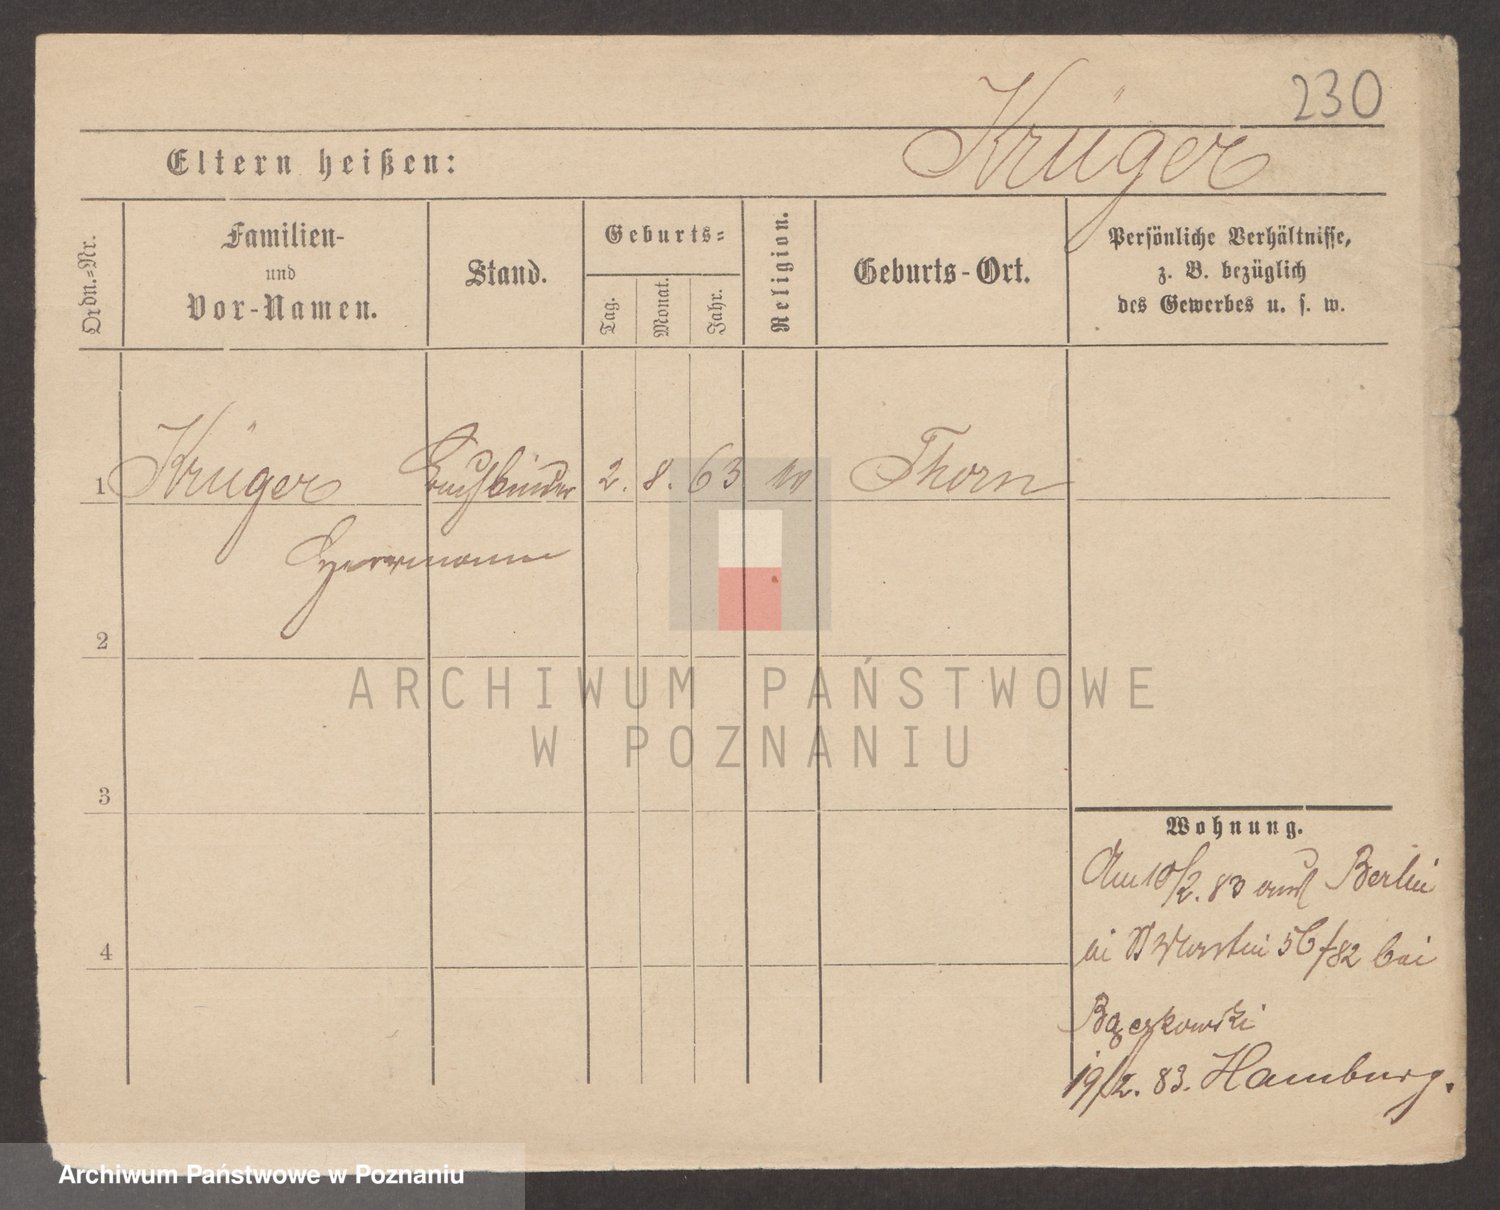 230
Krüger
Eltern heißen:
Ordn.=Nr.
Familien-
und
Vor-Namen.
Stand.
Geburts=
Tag.
Monat.
Jahr.
Religion.
Geburts-Ort.
Persönliche Verhältnisse,
z. B. bezüglich
des Gewerbes u. s. w.
1 Krüger Buchbinder 2. 8. 63 Thorn
Herrmann
2
3
4
Wohnung.
Am 10/2. 83 Berlin
St Martin 56/82 bei
Bączkowski
19/2. 83. Hamburg.
ARCHIWUM PAŃSTWOWE
W POZNANIU
Archiwum Państwowe w Poznaniu